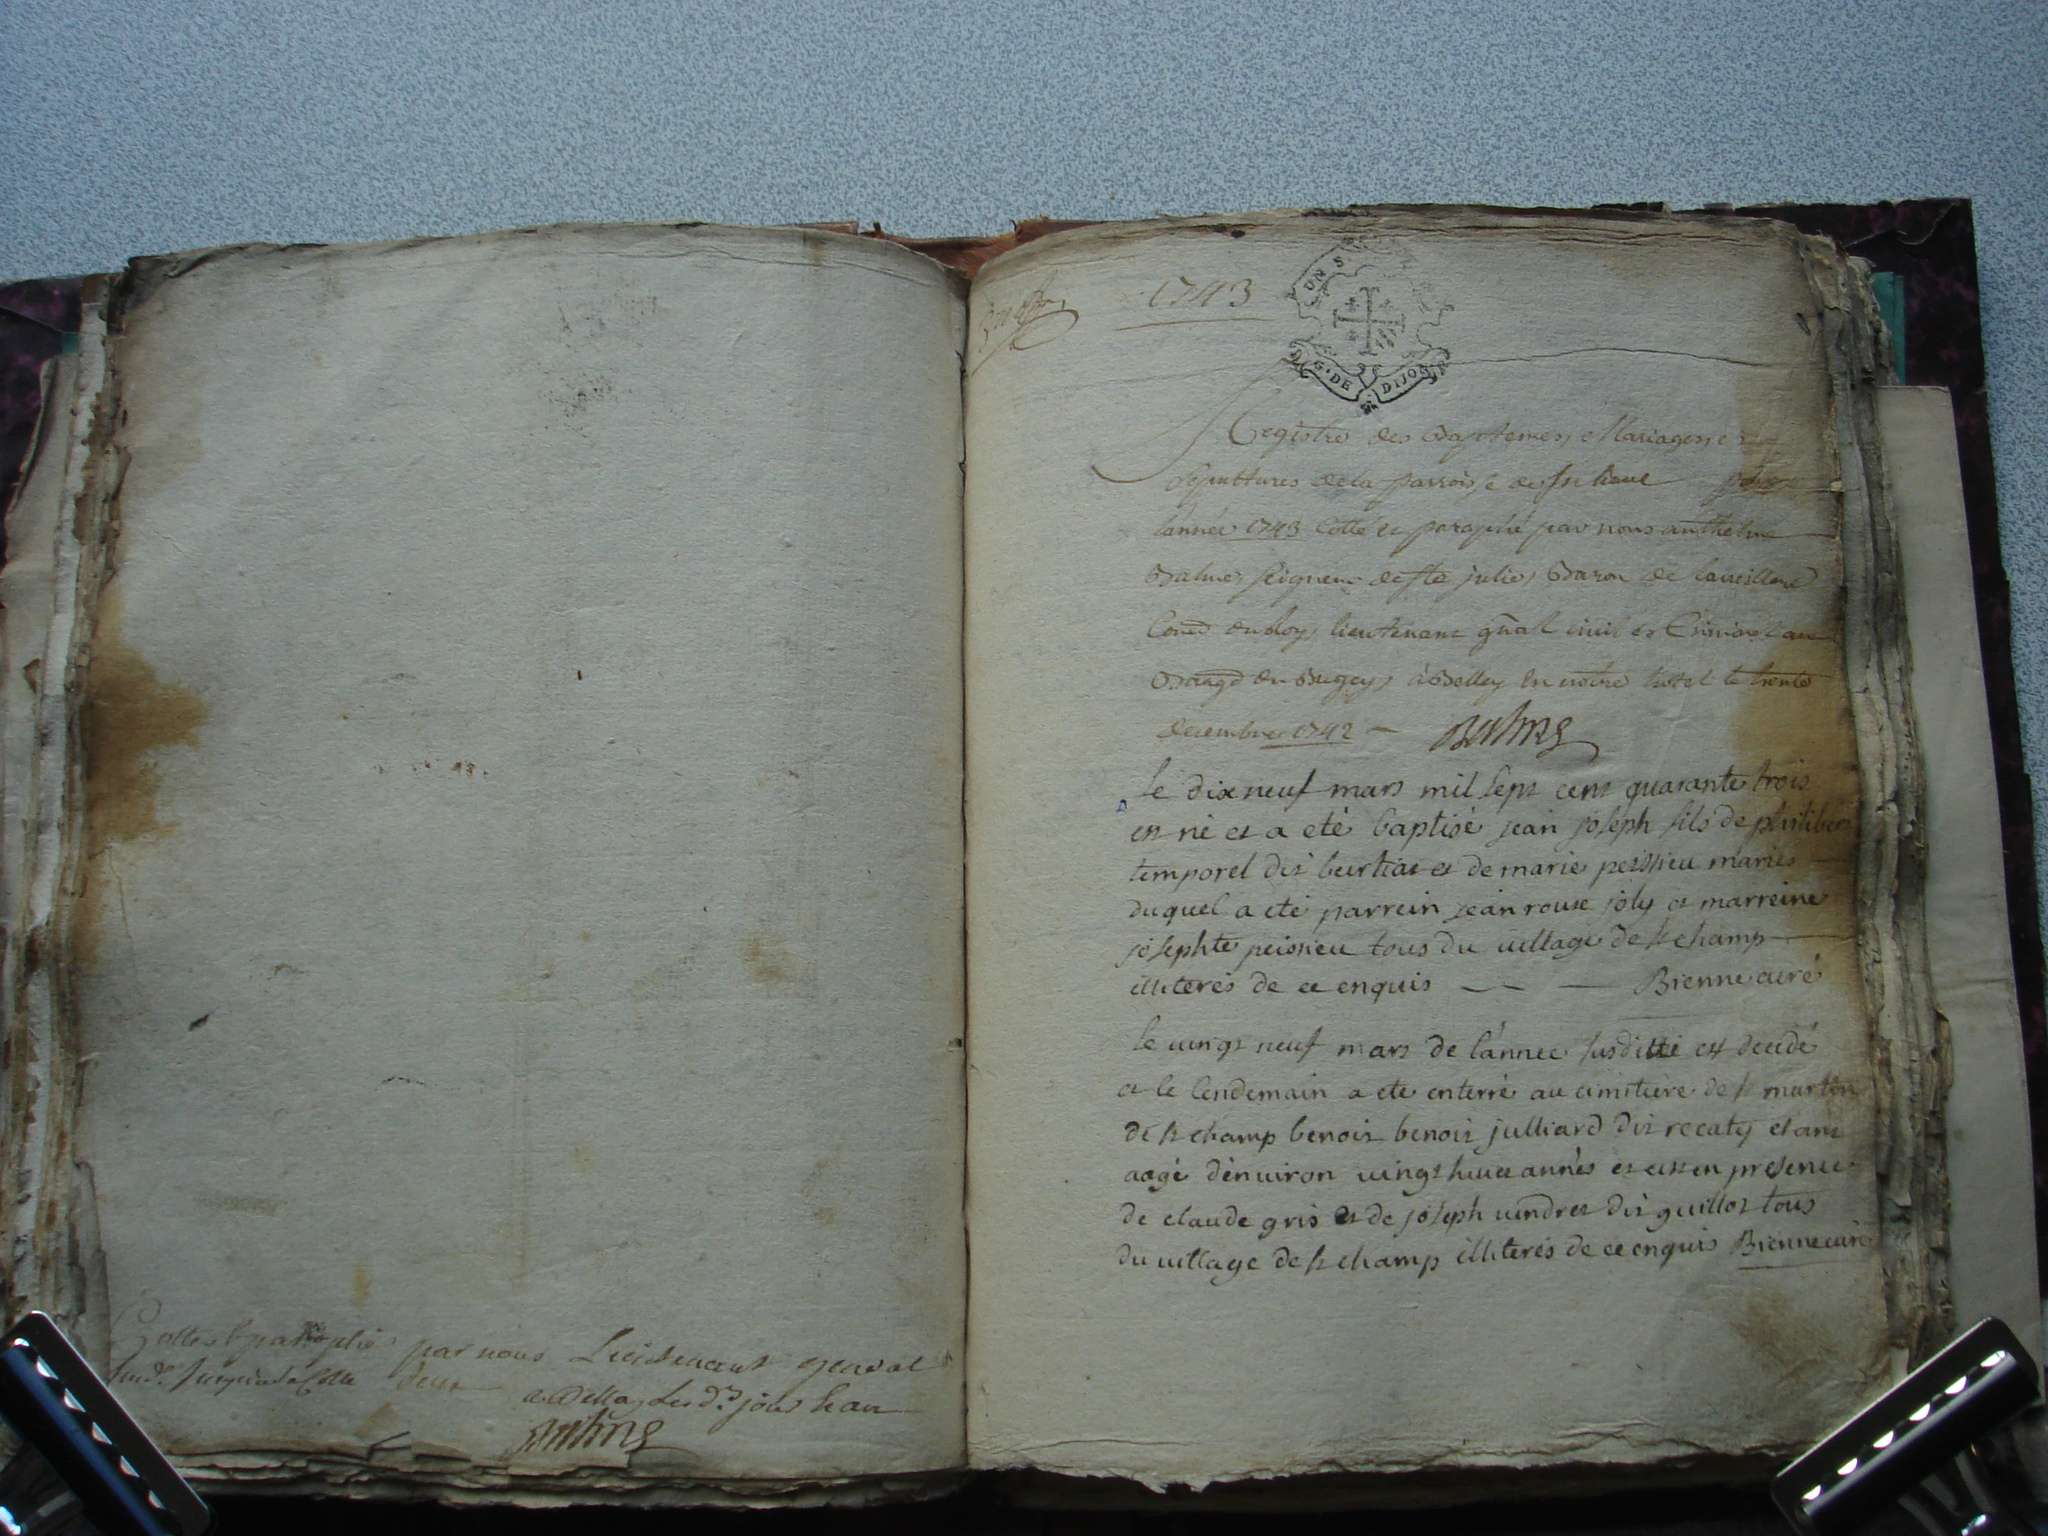 par nous Lieutenant general
deux
a Belley les d. jour et an
Balme
1743
UN S
G. DE DIJON
Registre des Baptemes, Mariages et
Sepultures de la parroisse de pour
lannée 1743 Cotté et paraphé par nous anthelme
Balme, seigneur de ste julie, Baron de
Cons. du Roy, lieutenant gnal civil et Criminel au
Baage du Bugey, à Belley en notre hotel le trente
decembre 1742 Balme
le dixneuf mars mil sept cent quarante trois
est né et a eté baptisé jean joseph fils de philibert
temporel dit burtiat et de marie peissieu mariés
duquel a eté parrein jean rouse joly et marreine
josephte peissieu tous du village de st champ
illiterés de ce enquis Bienne curé
le vingt neuf mars de l'annee susditte est decedé
et le lendemain a ete enterré au cimitiere de st martin
de st champ benoit benoit julliard dit recaty etant
aagé d'environ vingt huit années et ce en presence
de claude gris et de joseph vindret dit guillot tous
du village de st champ illiterés de ce enquis Bienne curé